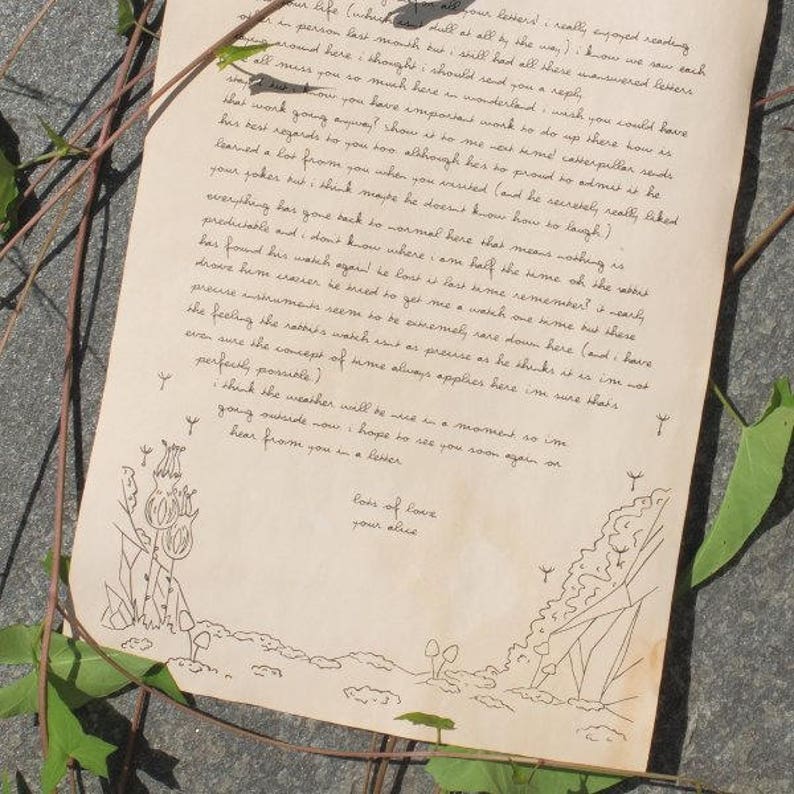 for all your letters! i really enjoyed reading
your life (which isn't dull at all by the way) i know we saw each
other in person last month but i still had all these unanswered letters
laying around here i thought i should send you a reply
all miss you so much here in wonderland i wish you could have
stayed but i know you have important work to do up there how is
that work going anyway? show it to me next time! catterpillar sends
his best regards to you too although hes to proud to admit it he
learned a lot from you when you visited (and he secretely really liked
your jokes but i think maybe he doesn't know how to laugh)
everything has gone back to normal here that means nothing is
predictable and i don't know where i am half the time oh the rabbit
has found his watch again! he lost it last time remember? it nearly
drove him crazier he tried to get me a watch one time but these
precise instruments seem to be extremely rare down here (and i have
the feeling the rabbits watch isnt as precise as he thinks it is im not
even sure the concept of time always applies here im sure thats
perfectly possible)
i think the weather will be nice in a moment so im
going outside now i hope to see you soon again or
hear from you in a letter
lots of love
your alice